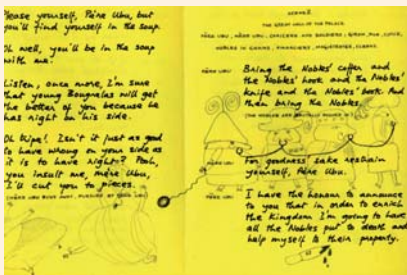 Please yourself, Père Ubu, but
you'll find yourself in the soup.
Oh well, you'll be in the soup
with me.
Listen, once more, I'm sure
that young Bougrelas will get
the better of you because he
has right on his side.
Oh tripe! Isn't it just as good
to have wrong on your side as
it is to have right? Pooh,
you insult me, mère Ubu,
I'll cut you to pieces.
(MÈRE UBU RUNS AWAY, PURSUED BY PÈRE UBU)
SCENE 2
THE GREAT HALL OF THE PALACE.
PÈRE UBU, MÈRE UBU, OFFICERS AND SOLDIERS; GIRON, PILE, COTICE,
NOBLES IN CHAINS, FINANCIERS, MAGISTRATES, CLERKS.
PÈRE UBU Bring the Nobles' coffer and
the Nobles' hook and the Nobles'
knife and the Nobles' book. And
then bring the Nobles.
(THE NOBLES ARE BRUTALLY PUSHED IN)
MÈRE UBU For goodness sake restrain
yourself, Père Ubu.
PÈRE UBU I have the honour to announce
to you that in order to enrich
the Kingdom I'm going to have
all the Nobles put to death and
help myself to their property.